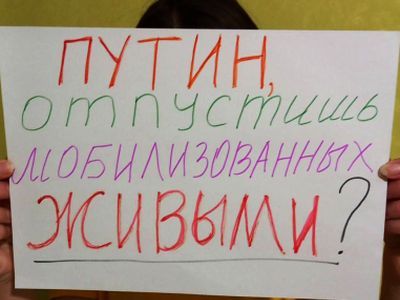 ПУТИН,
отпустишь
МОБИЛИЗОВАННЫХ
ЖИВЫМИ?